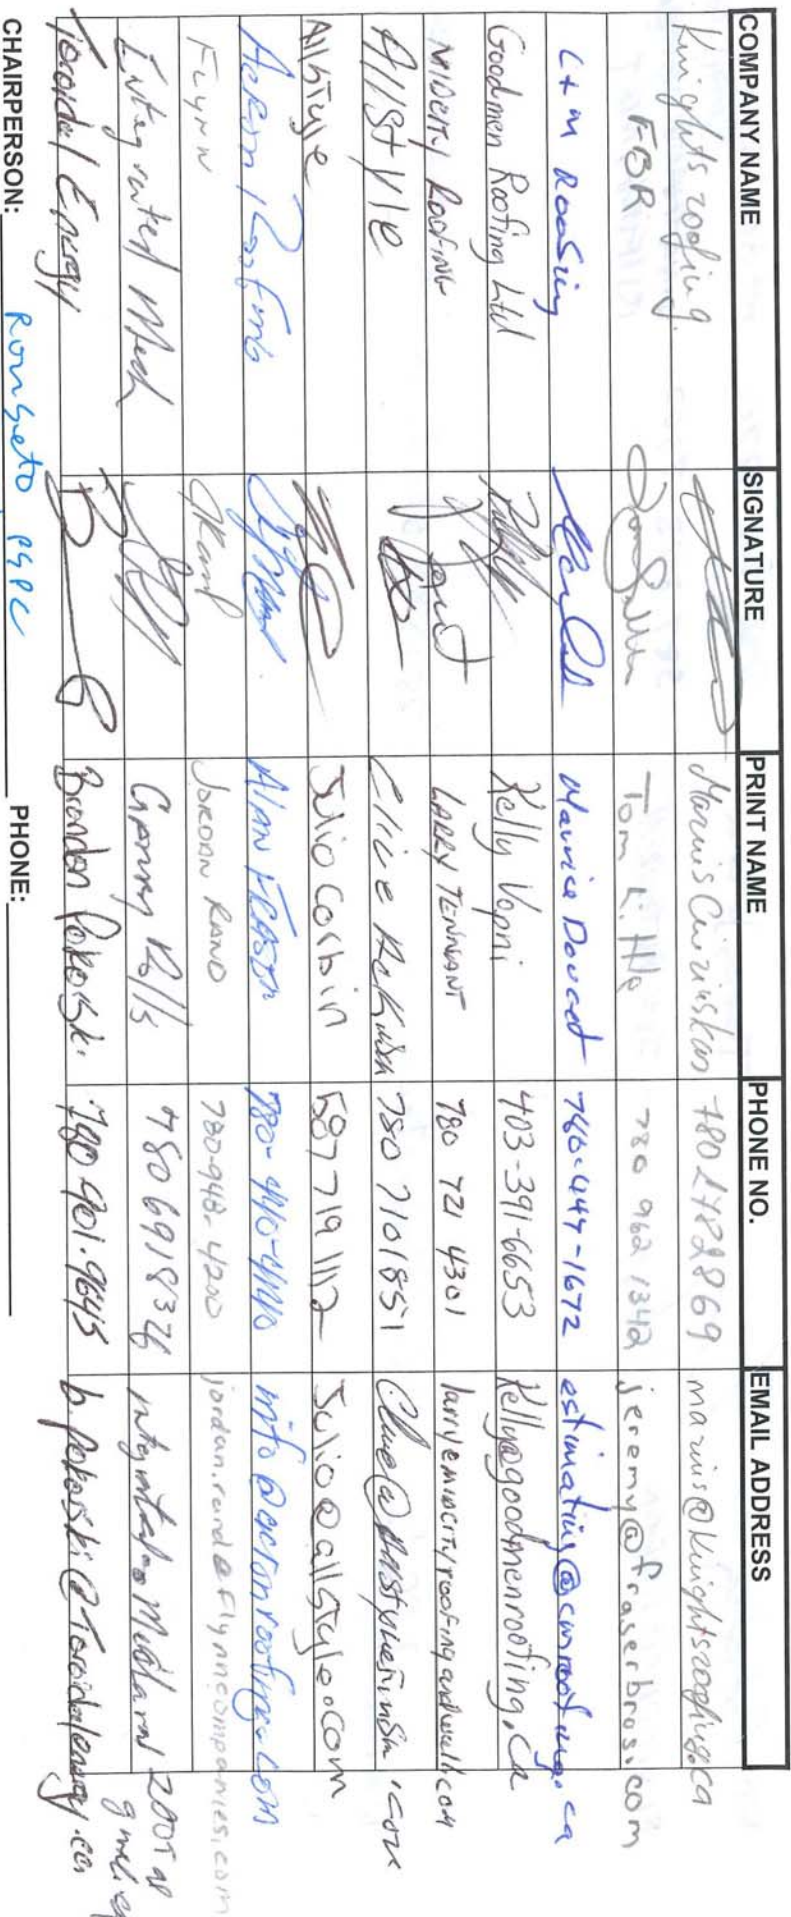 COMPANY NAME SIGNATURE PRINT NAME PHONE NO. EMAIL ADDRESS
Knights roofing. Marius 780 2782869 marius@Knightsroofing.ca
FBR Tom 780 962 1342 jeremy@fraserbros.com
C+M Roofing Maurice Doucet 780-447-1672 estimating@cmroofing.ca
Goodmen Roofing Ltd Kelly Vopni 403-391-6653 Kelly@goodmenroofing.ca
MIDCITY ROOFING LARRY TENNANT 780 721 4301 larry@midcityroofingandwall.com
Allstyle Clive 780 7101851
Allstyle Julio Corbin 587 719 1112 Julio@allstyle.com
Acron Roofing Alan 780-440-4440 info@acronroofing.com
Flynn JORDAN RAND 780-948-4200 jordan.rand@Flynncompanies.com
Integrated Mech 780 6918376
Toroidal Energy Brandon Pokorski 780 901.9645 b.pokorski@Toroidalenergy.com
CHAIRPERSON: PSPC PHONE: